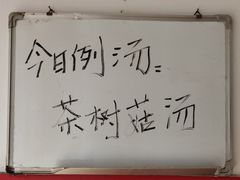 今日例汤:
茶树菇汤